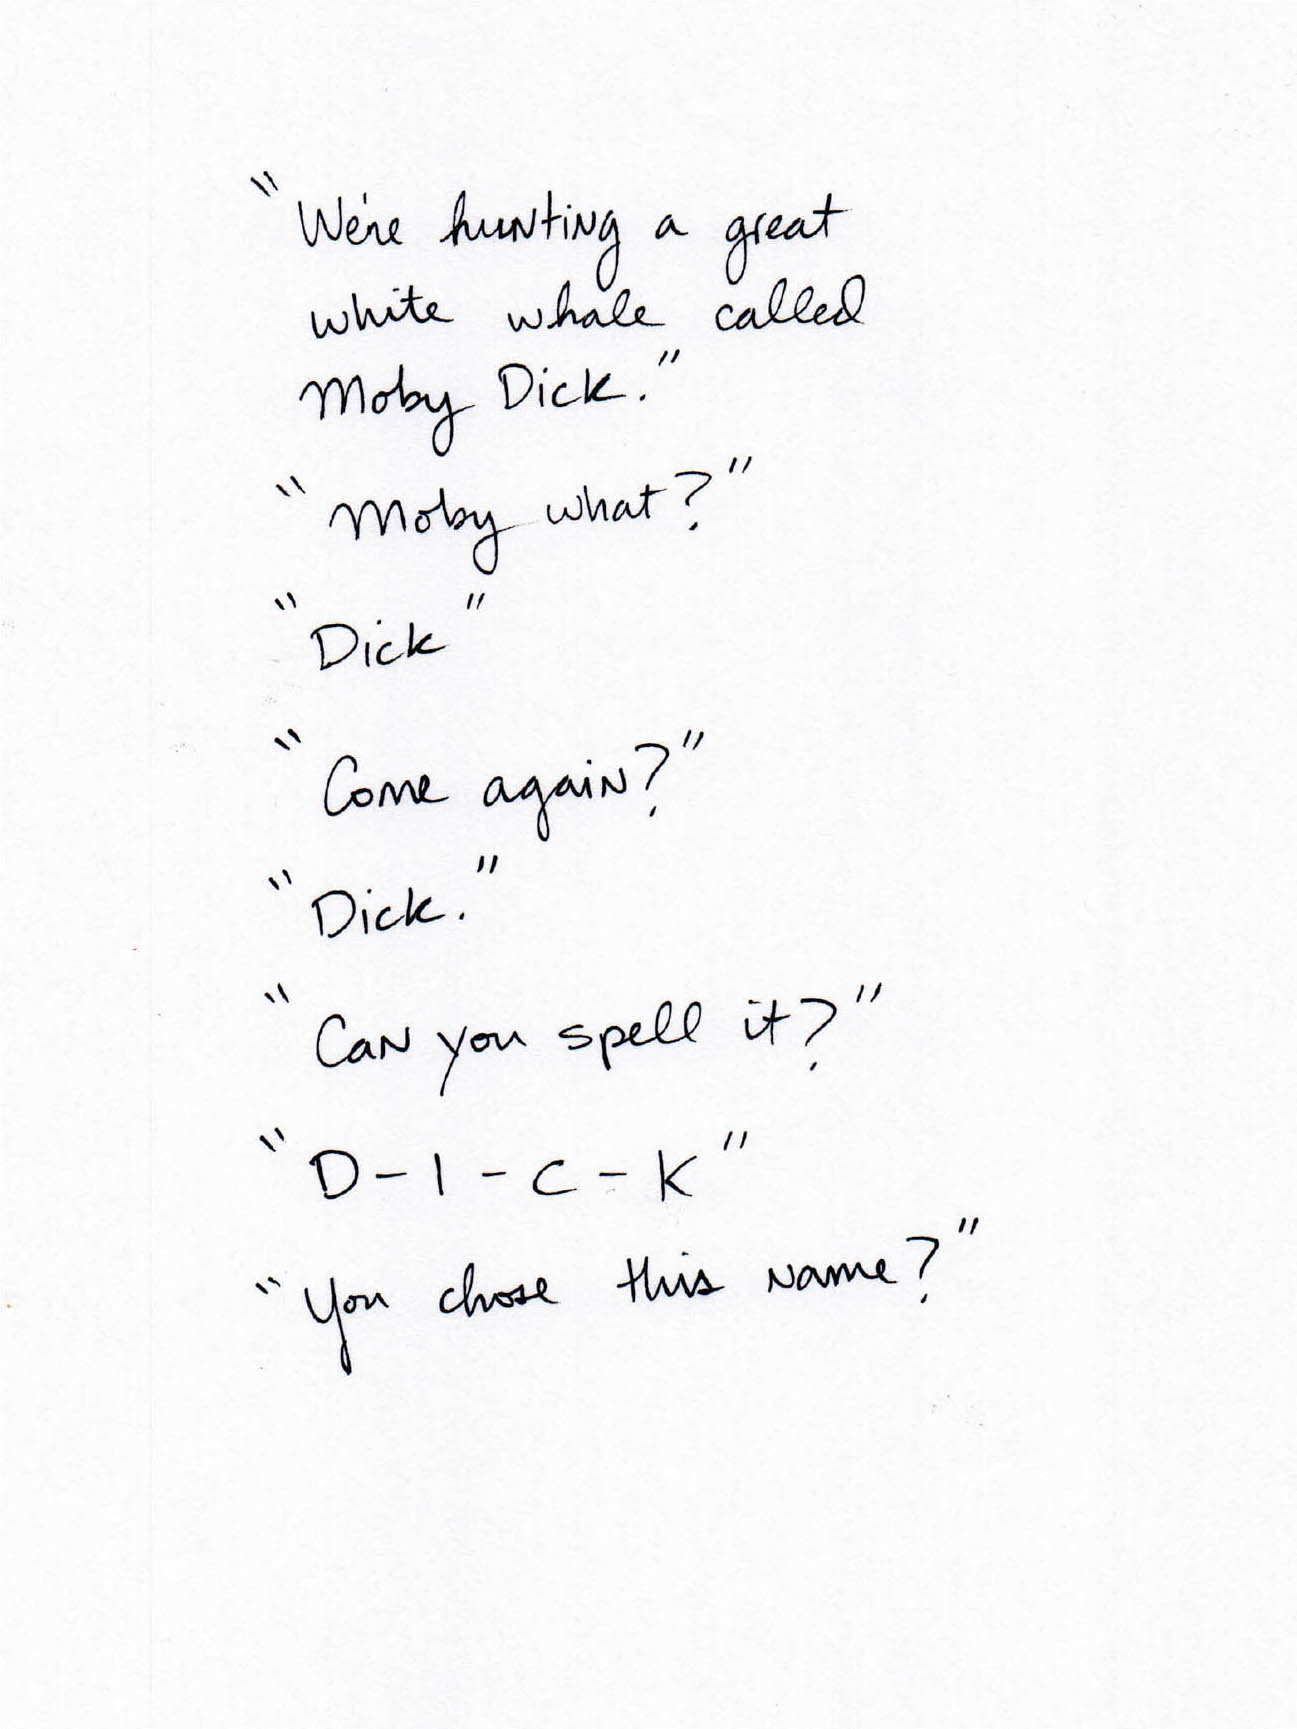 "We're hunting a great
white whale called
Moby Dick."
"Moby what?"
"Dick"
"Come again?"
"Dick."
"Can you spell it?"
"D-I-C-K"
"You chose this name?"